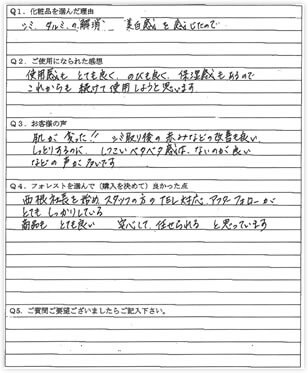 Q1. 化粧品を選んだ理由
シミ、タルミ、の解消、 美白感を感じたので
Q2. ご使用になられた感想
使用感もとても良く、のびも良く、保湿感もあるので
これからも続けて使用しようと思います
Q3. お客様の声
肌が変った!! シミ取り後の赤みなどの改善も良い
しっとりするのに、しつこいベタベタ感は、ないのが良い
などの声が多いです
Q4. フォレストを選んで(購入を決めて)良かった点
西根社長を始め スタッフの方のTEL対応、アフターフォローが
とてもしっかりしている
商品もとても良い 安心して任せられると思っています
Q5. ご質問ご要望ございましたらご記入下さい。